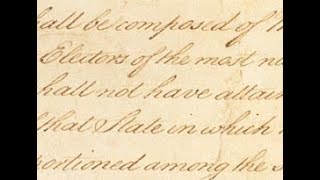 shall be composed of
Electors of the most nu
shall not have attain
that State in which
portioned among the s